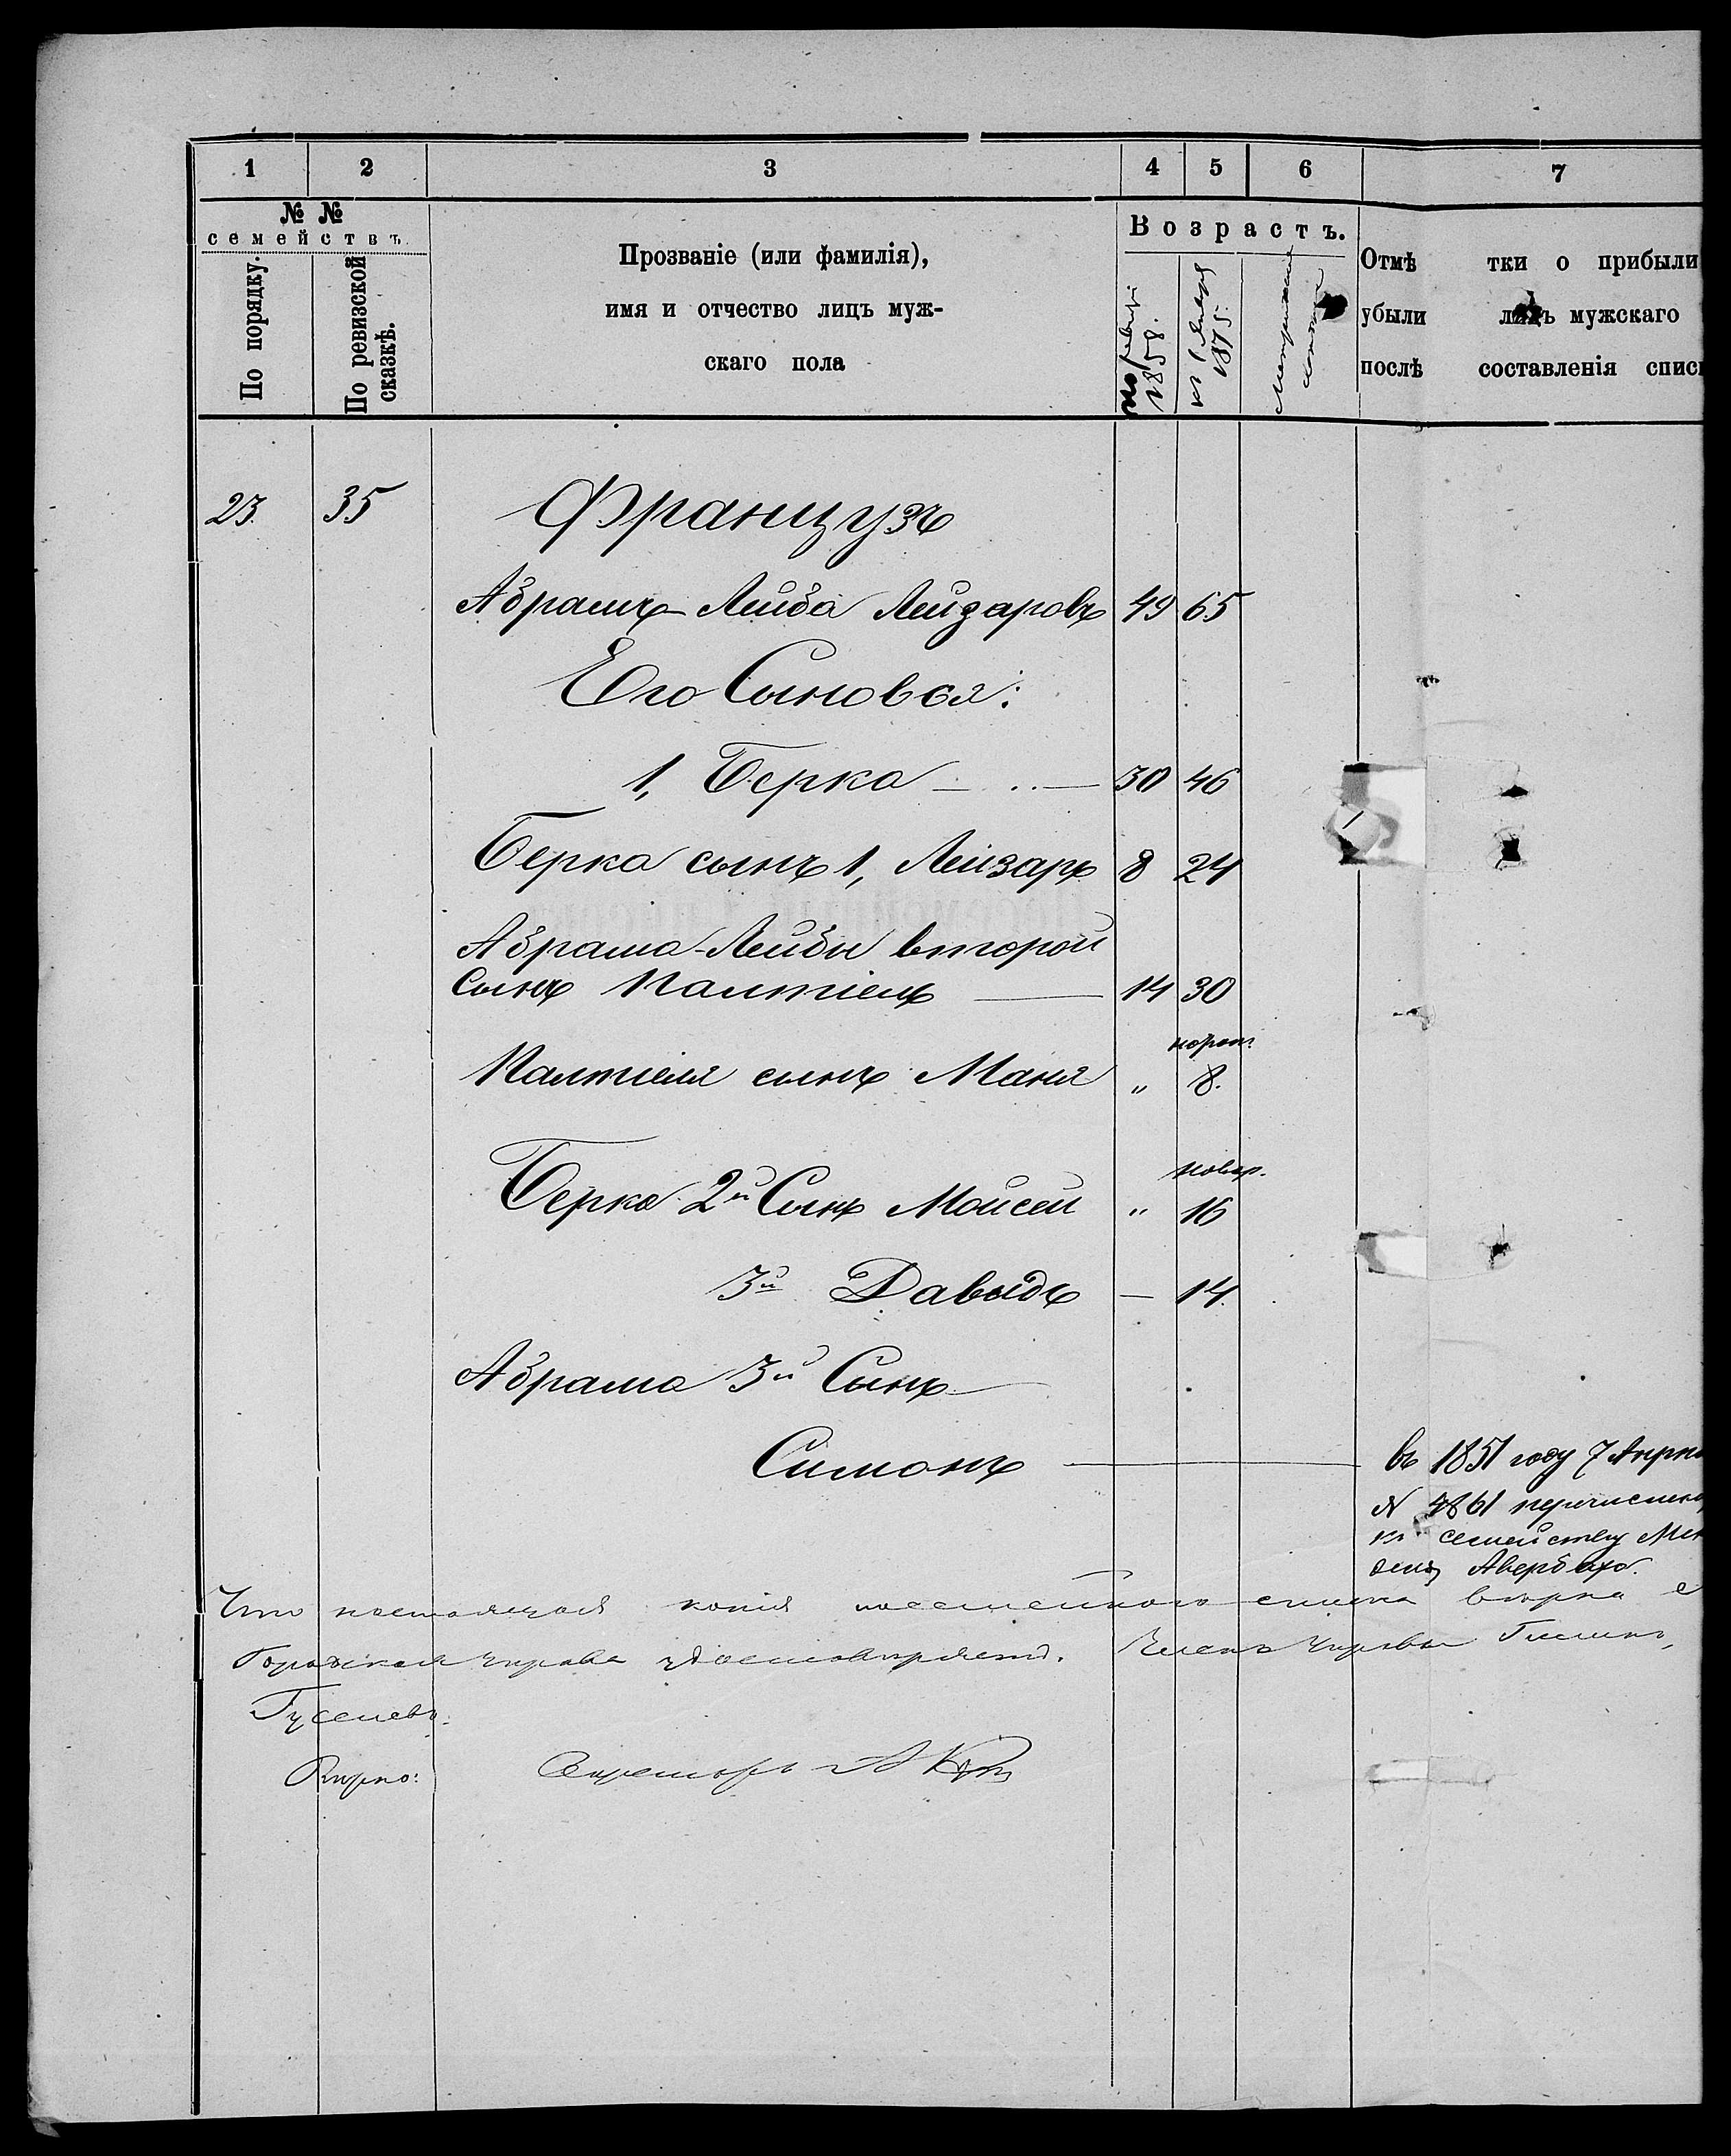 1 2 3 4 5 6 7
№ № семействъ.
По порядку.
По ревизской сказкѣ.
Прозваніе (или фамилія),
имя и отчество лицъ муж-
скаго пола
Возрастъ.
по ревизіи 1858.
къ 1 Января 1875.
Отмѣ тки о прибыли
убыли лицъ мужскаго
послѣ составленія списк
23. 35 Французъ
Абрамъ-Лейба Лейзаровъ 49 65
Его Сыновья:
1, Берка 30 46
Берка сынъ 1, Лейзаръ 8 24
Абрама-Лейбы второй
сынъ Палтіель 14 30
Палтіеля сынъ Маня " 8.
новор.
Берка 2й Сынъ Мойсей " 16
3й Давыдъ — 14.
Абрама 3й Сынъ
Симонъ
въ 1851 году 7 Апрѣ
№ 4861 перечисленъ
къ семейству Мен
деля Авербаха.
Что настоящая копія посемейнаго списка вѣрна
Городская Управа удостовѣряетъ. Членъ Управы
Вѣрно: Секретарь